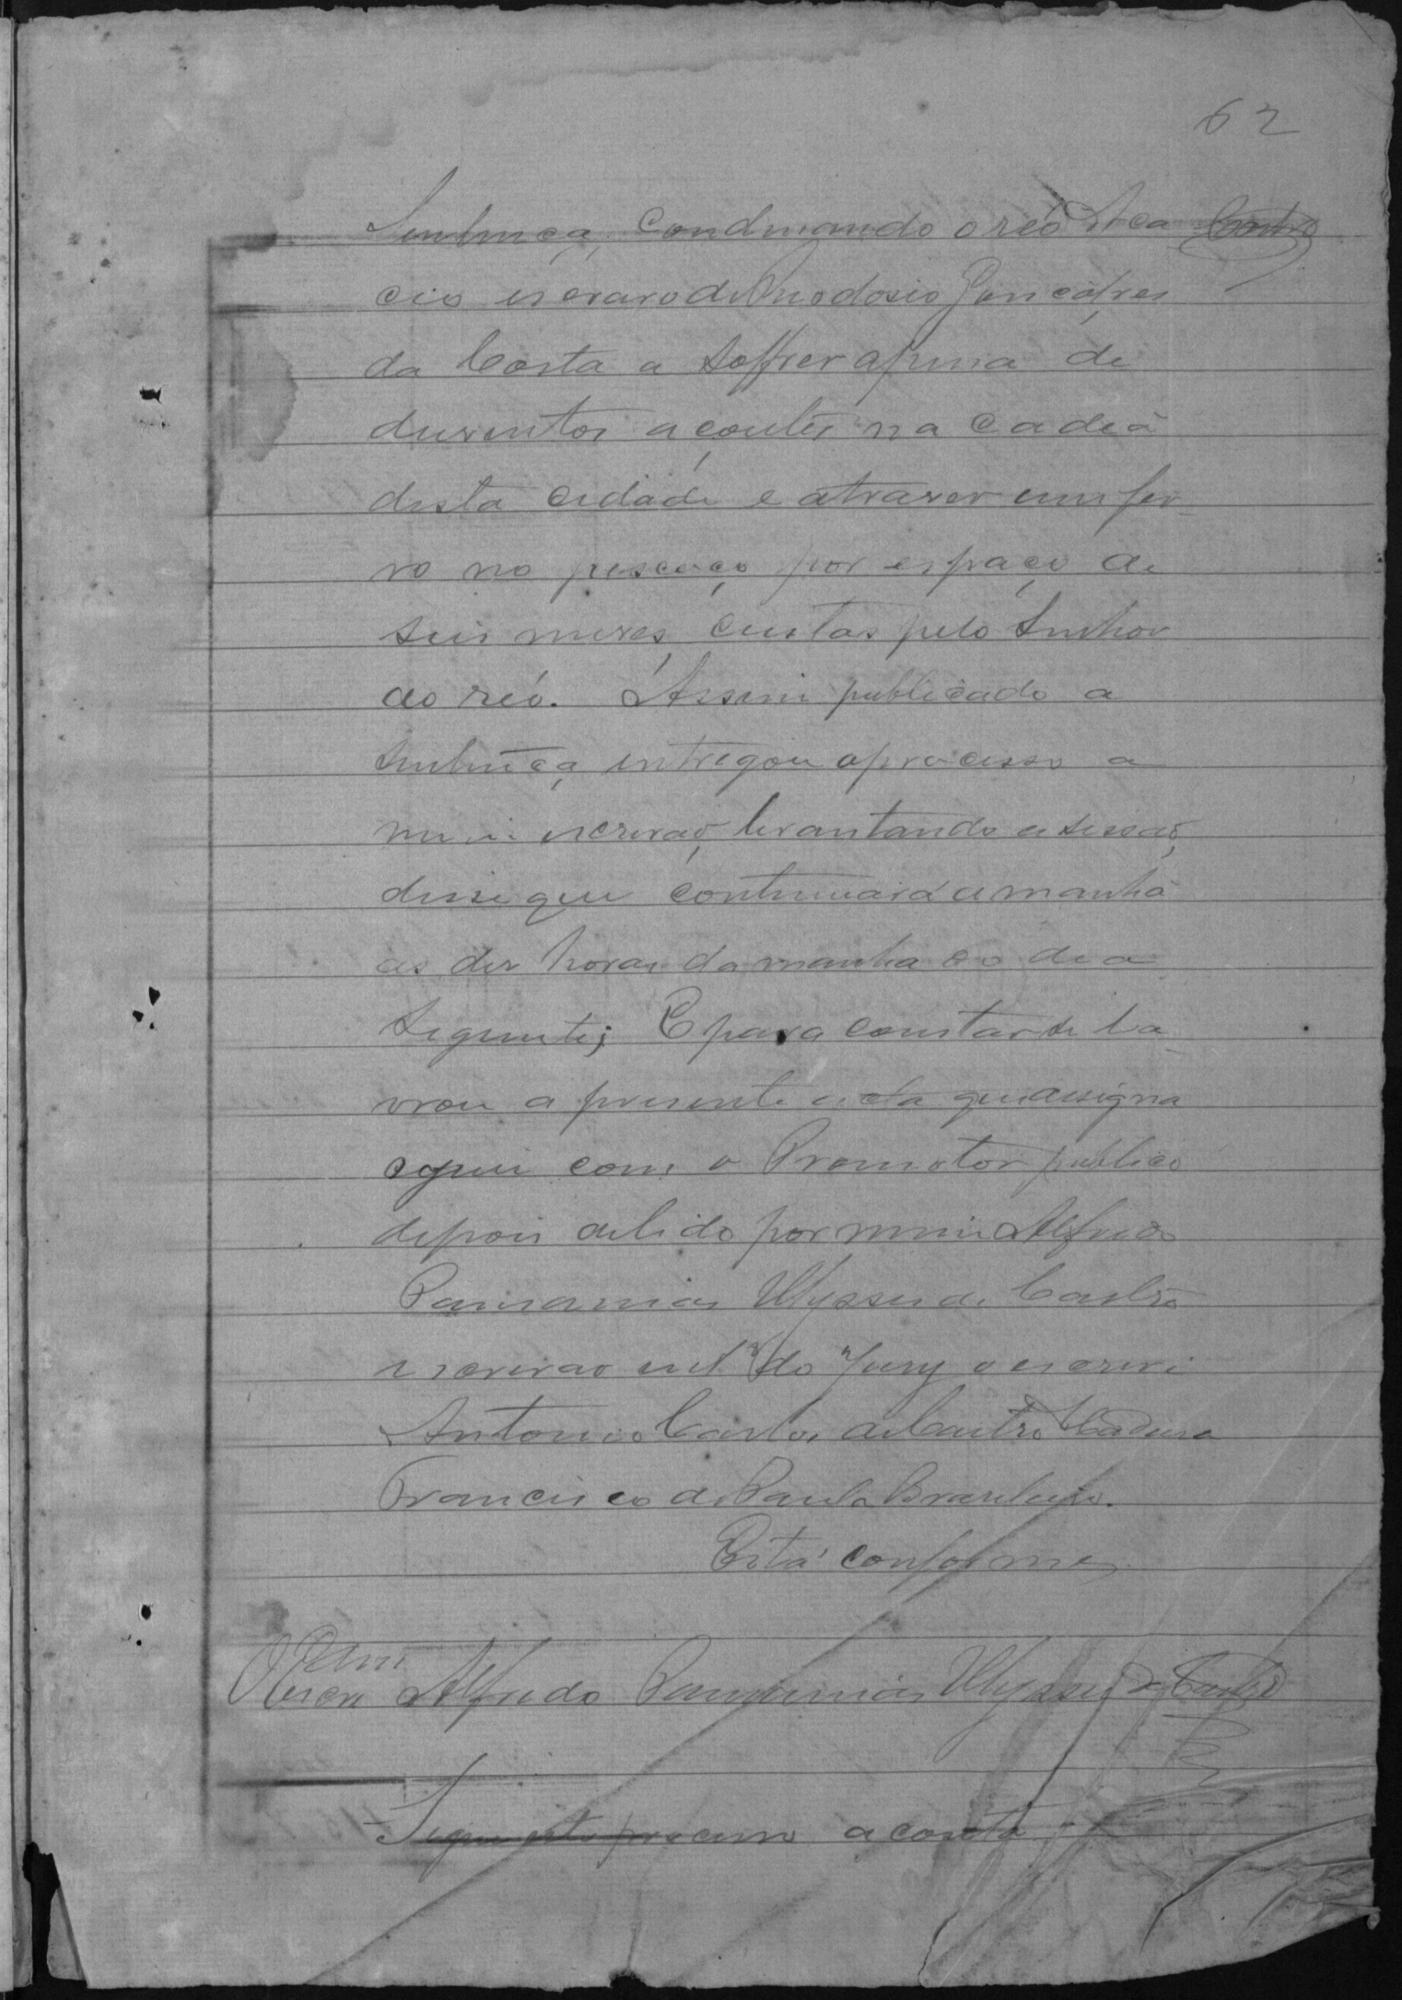 62
Sentença, condenando o réo Aca Castro
cio escravo de Theodosio Gonçalves
da Costa a soffrer a pena de
duzentos açoutes na cadeã
desta cidade e a trazer um fer-
ro no pescoço por espaço de
seis mezes, custas pelo Senhor
do réo. Assim publicado a
Sentença, entregou o processo a
mim escrivaõ, levantando a sessaõ,
disse que continuará amanhã
as dez horas da manhã do dia
seguinte; E para constar se la
vrou a presente acta que assigna
o juiz com o Promotor publico
depois de lido por mim Alfredo
Ulysses de Castro
escrivaõ do Jury o escrevi
Antonio Carlos de Castro Madura
Francisco de Paula Brasileiro.
Está conforme
Alfredo Ulysses de Castro
Segue este processo a conta